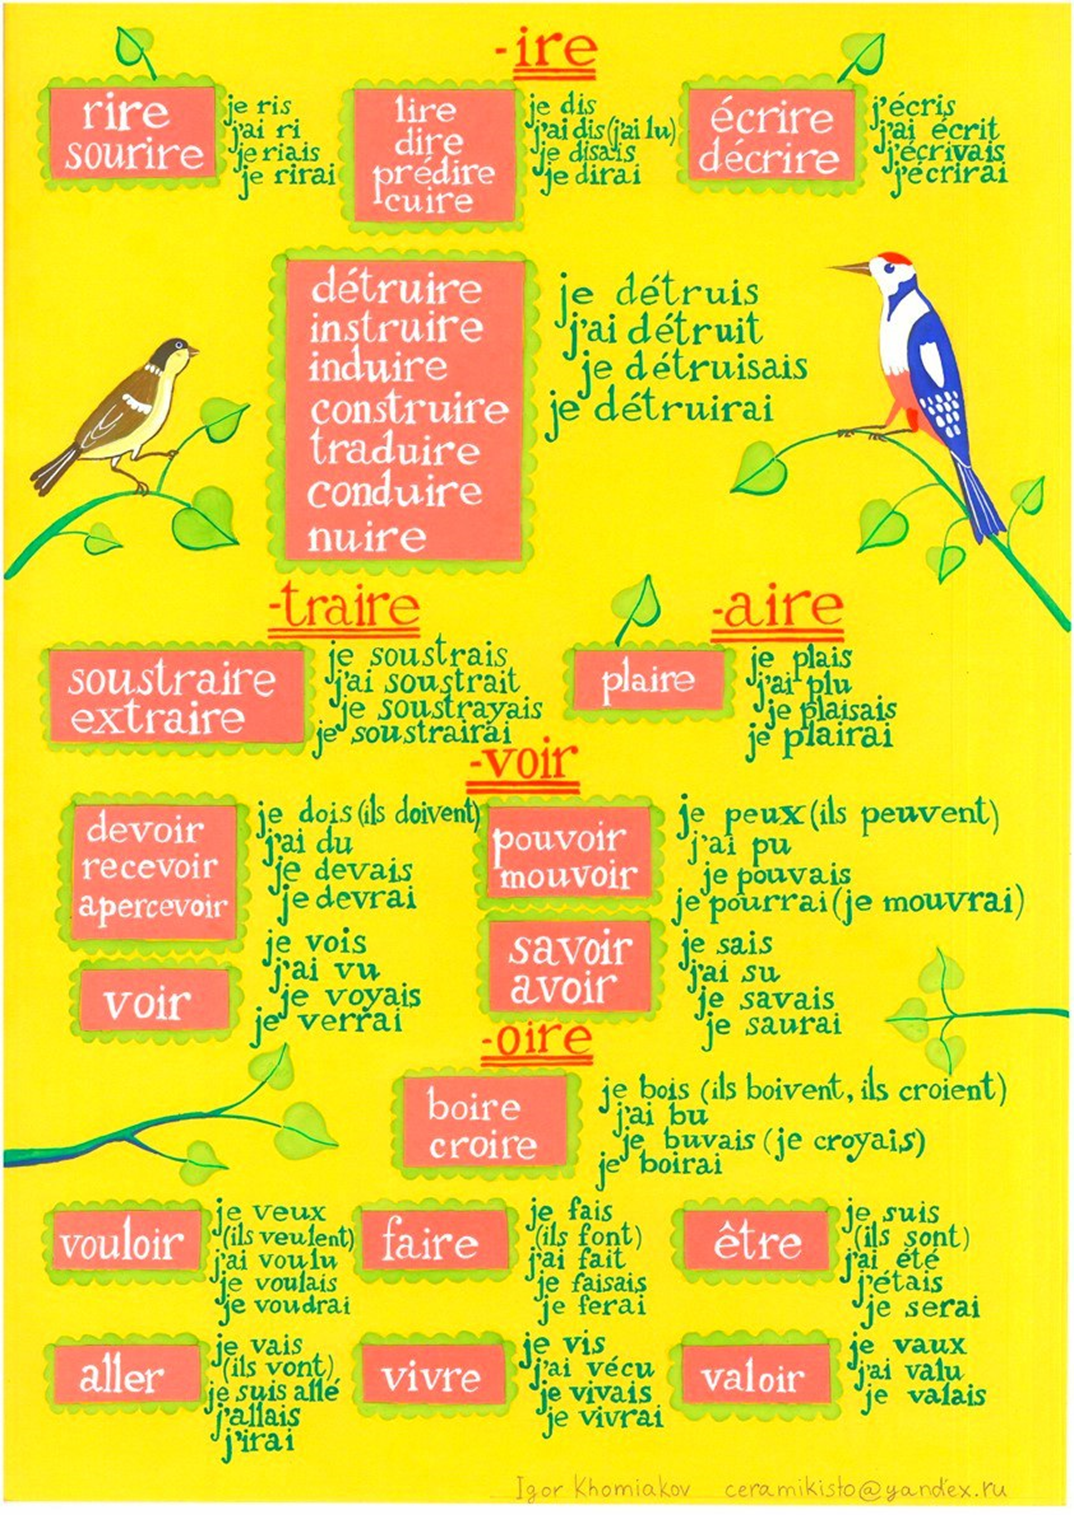 -ire
rire
sourire
je ris
j'ai ri
je riais
je rirai
lire
dire
prédire
cuire
je dis
j'ai dis (j'ai lu)
je disais
je dirai
écrire
décrire
j'écris
j'ai écrit
j'écrivais
j'écrirai
détruire
instruire
induire
construire
traduire
conduire
nuire
je détruis
j'ai détruit
je détruisais
je détruirai
-traire
soustraire
extraire
je soustrais
j'ai soustrait
je soustrayais
je soustrairai
-aire
plaire
je plais
j'ai plu
je plaisais
je plairai
-voir
devoir
recevoir
apercevoir
je dois (ils doivent)
j'ai du
je devais
je devrai
pouvoir
mouvoir
je peux (ils peuvent)
j'ai pu
je pouvais
je pourrai (je mouvrai)
voir
je vois
j'ai vu
je voyais
je verrai
savoir
avoir
je sais
j'ai su
je savais
je saurai
-oire
boire
croire
je bois (ils boivent, ils croient)
j'ai bu
je buvais (je croyais)
je boirai
vouloir
je veux
(ils veulent)
j'ai voulu
je voulais
je voudrai
faire
je fais
(ils font)
j'ai fait
je faisais
je ferai
être
je suis
(ils sont)
j'ai été
j'étais
je serai
aller
je vais
(ils vont)
je suis allé
j'allais
j'irai
vivre
je vis
j'ai vécu
je vivais
je vivrai
valoir
je vaux
j'ai valu
je valais
Igor Khomiakov ceramikisto@yandex.ru